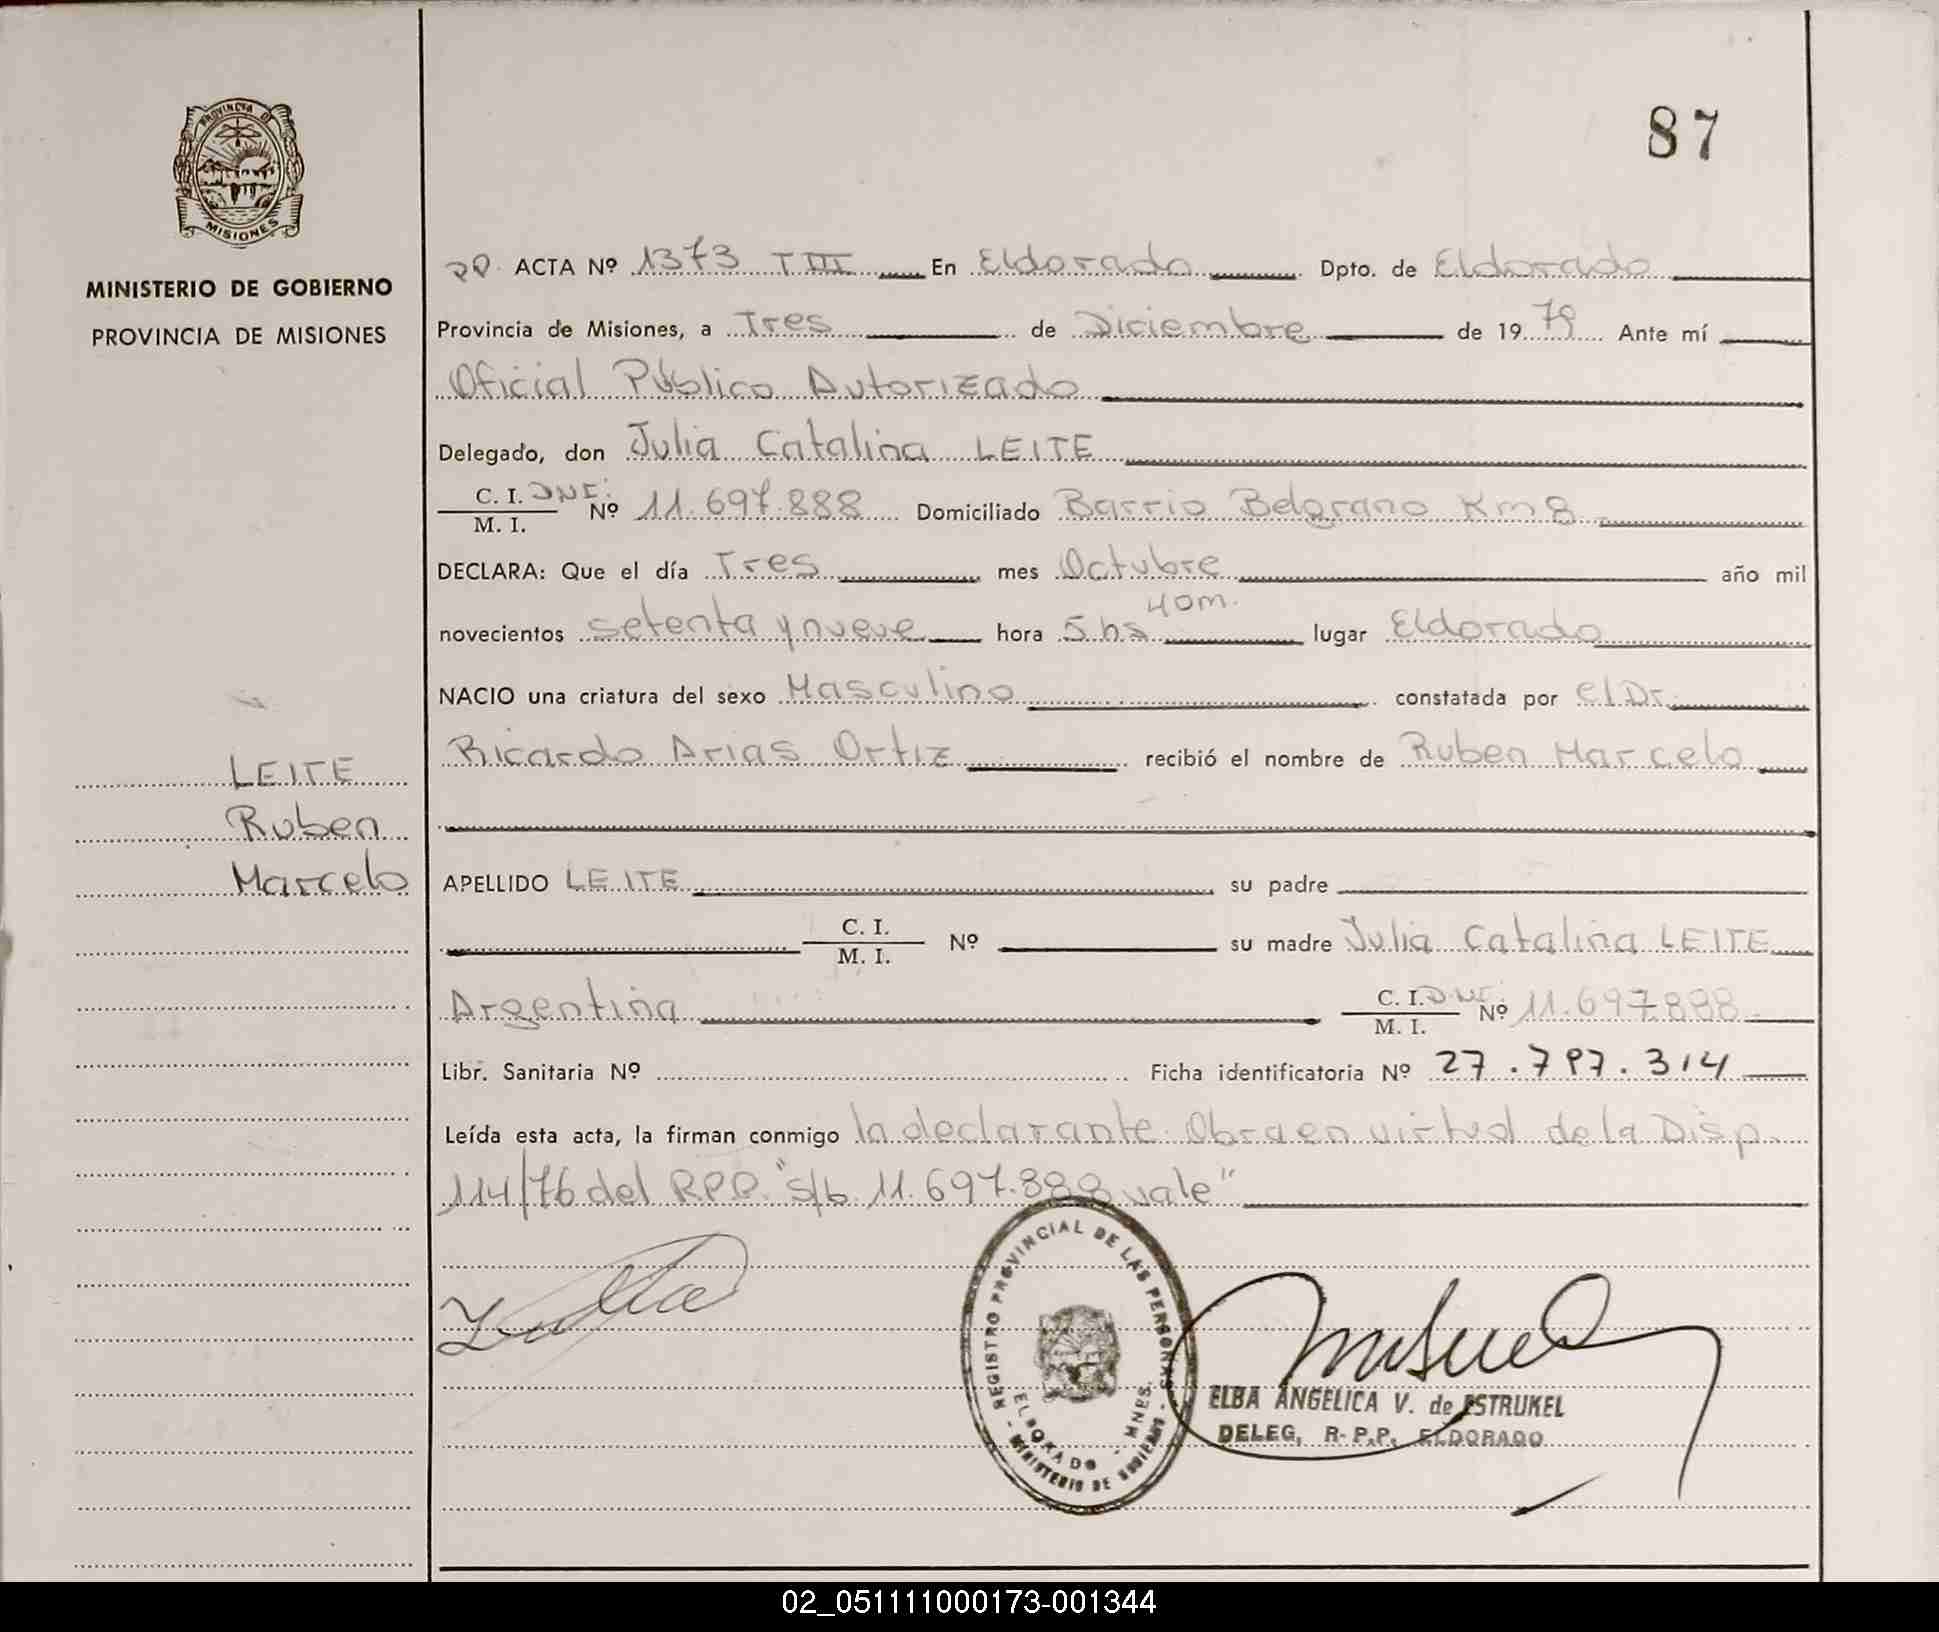 PROVINCIA DE
MISIONES
MINISTERIO DE GOBIERNO
PROVINCIA DE MISIONES
87
ACTA Nº 1373 T III En Eldorado Dpto. de Eldorado
Provincia de Misiones, a Tres de Diciembre de 1979 Ante mí
Oficial Público Autorizado
Delegado, don Julia Catalina LEITE
C. I. DNI. Nº 11.697.888 Domiciliado Barrio Belgrano Km 8
M. I.
DECLARA: Que el día Tres mes Octubre año mil
novecientos setenta y nueve hora 5 hs 40m. lugar Eldorado
NACIO una criatura del sexo Masculino constatada por el Dr.
Ricardo Arias Ortiz recibió el nombre de Ruben Marcelo
LEITE
Ruben
Marcelo
APELLIDO LEITE su padre
C. I.
M. I. Nº su madre Julia Catalina LEITE
Argentina C. I. DNI. Nº 11.697.888
M. I.
Libr. Sanitaria Nº Ficha identificatoria Nº 27.797.314
Leída esta acta, la firman conmigo la declarante. Obra en virtud de la Disp.
114/76 del RPP. "s/b 11.697.888 vale"
REGISTRO PROVINCIAL DE LAS PERSONAS
ELDORADO - MNES.
- MINISTERIO DE GOBIERNO -
ELBA ANGELICA V. de ESTRUKEL
DELEG, R- P.P. ELDORADO
02_051111000173-001344